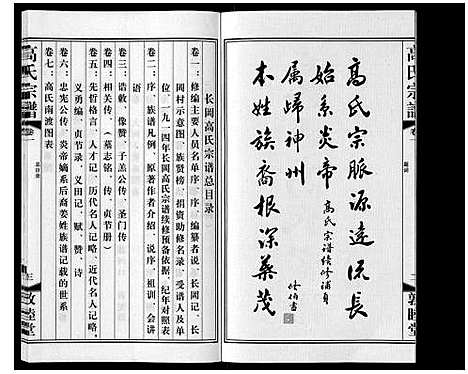 高氏宗譜
卷一
題詞
二
敦睦堂
高氏宗脉源远流长
始系炎帝 高氏宗谱续修补身
属归神州
本姓族裔根深叶茂
长岡高氏宗谱总目录
卷一：修编主要人员名单序、序、编纂者说、长岡记、长
岡村示意图、族贤榜、捐资助修名录、受谱人及单
位、一九一四年长岡高氏宗谱续修预备依据、纪年对照表
卷二：序、族谱凡例、原著作者介绍、说序、祖训、会讲
语
卷三：诰敕、像赞、子羔公传、圣门传
卷四：相关传、（墓志铭、传、贞节册）
卷五：先哲格言、人才记、历代名人记略、近代名人记略，
义勇编、贞节录、义田记、赋、赞、诗
卷六：忠宪公传、炎帝嫡系后裔姜姓族谱记载的世系
卷七：高氏南渡图表
高氏宗譜
卷一
总目录
敦睦堂